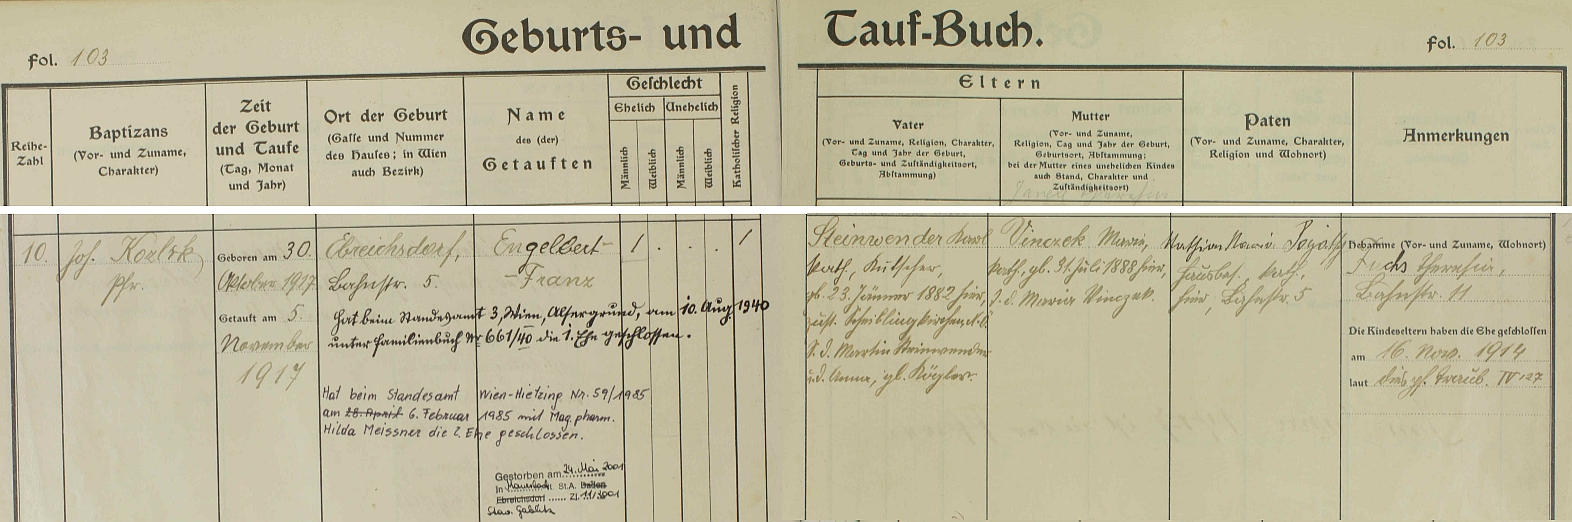 Geburts- und Tauf-Buch.
Fol. 103
Fol. 103
Reihe-Zahl
Baptizans
(Vor- und Zuname,
Charakter)
Zeit
der Geburt
und Taufe
(Tag, Monat
und Jahr)
Ort der Geburt
(Gasse und Nummer
des Hauses; in Wien
auch Bezirk)
Name
des (der)
Getauften
Geschlecht
Ehelich
Unehelich
Männlich
Weiblich
Männlich
Weiblich
Katholischer Religion
Eltern
Vater
(Vor- und Zuname, Religion, Charakter,
Tag und Jahr der Geburt,
Geburts- und Zuständigkeitsort,
Abstammung)
Mutter
(Vor- und Zuname,
Religion, Tag und Jahr der Geburt,
Geburtsort, Abstammung;
bei der Mutter eines unehelichen Kindes
auch Stand, Charakter und
Zuständigkeitsort)
Paten
(Vor- und Zuname, Charakter,
Religion und Wohnort)
Anmerkungen
10.
Joh.
Pfr.
Geboren am 30.
Oktober 1917
Getauft am 5.
November
1917
Ebreichsdorf,
Bahnstr. 5.
Engelbert
Franz
1 . . . 1
Hat beim Standesamt 3, Wien, Alsergrund, am 10. Aug. 1940
unter Familienbuch Nr 661/40 die 1. Ehe geschlossen.
Hat beim Standesamt Wien-Hietzing Nr. 59/1985
am 28. April 6. Februar 1985 mit Mag. pharm.
Hilda Meissner die 2. Ehe geschlossen.
Gestorben am 24. Mai 2001
in Mauerbach lt. St.A. Baden
Ebreichsdorf Zl. 11/2001
Stav. Gablitz
Steinwender Karl
kath., Kutscher,
gb. 23. Jänner 1882 hier,
zust. Scheiblingkirchen, N.Ö.
S. d. Martin Steinwender
u. d. Anna, gb. Kögler.
Vinczek Maria,
kath., gb. 31. Juli 1888 hier,
T. d. Maria Vinczek.
Mathias Maria
Hausbes., kath.,
hier, Bahnstr. 5
Hebamme (Vor- und Zuname, Wohnort)
Fuchs Theresia,
Bahnstr. 11
Die Kindeseltern haben die Ehe geschlossen
am 16. Nov. 1914
laut dies pf. Traub. IV 127